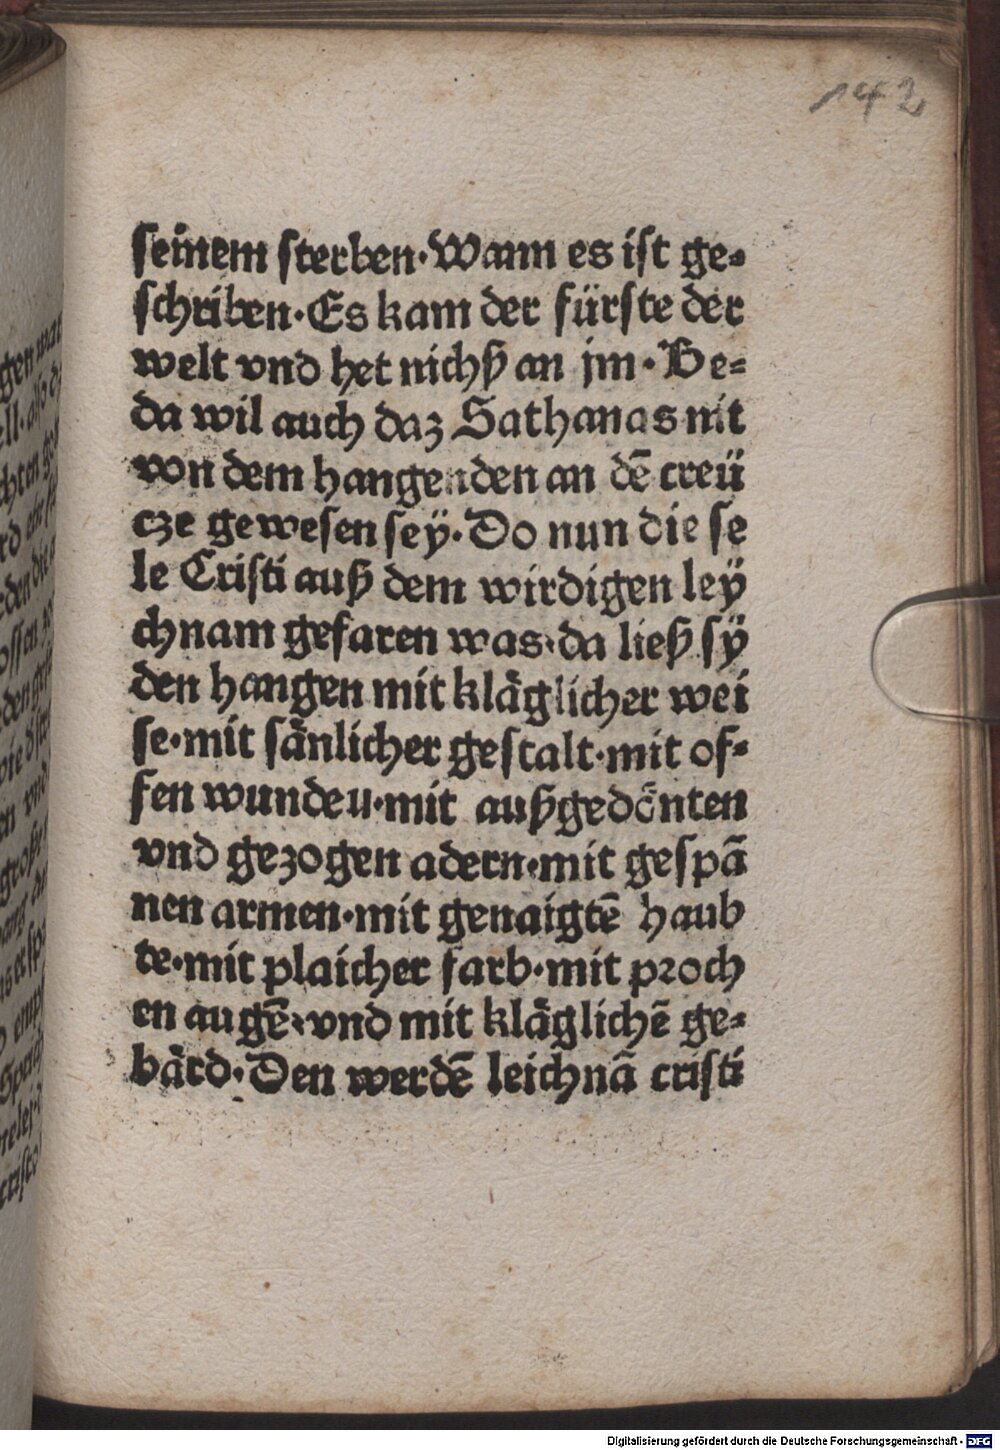 142
seinem sterben·Wann es ist ge⸗
schriben·Es kam der fürste der
welt vnd het nichß an jm·Be⸗
da wil auch daz Sathanas nit
von dem hangenden an dē creü
cze gewesen seÿ·Do nun die se
le Cristi auß dem wirdigen leÿ
chnam gefaren was·da ließ sÿ
den hangen mit kläglicher wei
se·mit sänlicher gestalt·mit of⸗
fen wunden·mit außgedönten
vnd gezogen adern·mit gespā
nen armen·mit genaigtē haub
te·mit plaicher farb·mit proch
en augē·vnd mit kläglichē ge⸗
bärd·Den werdē leichnā cristi
Digitalisierung gefördert durch die Deutsche Forschungsgemeinschaft - DFG